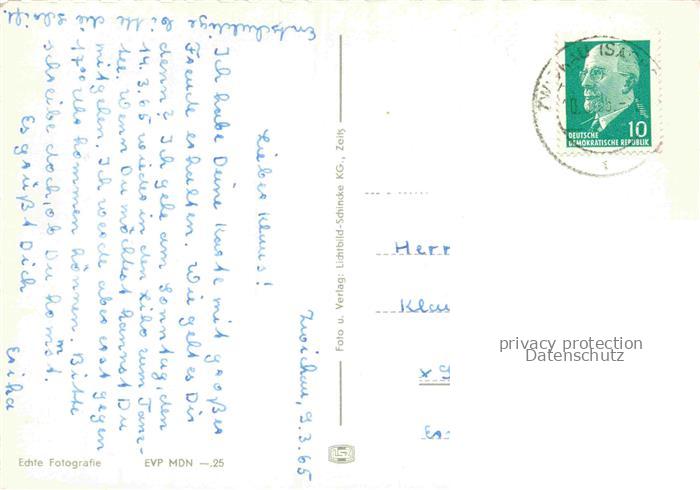 Zwickau, 9.3.65
Lieber Klaus!
Ich habe Deine Karte mit großer
Freude erhalten. Wie geht es Dir
denn? Ich gehe am Sonntag, den
14.3.65 wieder in den zum Tanz-
tee. Wenn Du möchtest kannst Du
mitgehen. Ich werde aber erst gegen
17⁰⁰ Uhr kommen können. Bitte
schreibe doch, ob Du kommst.
Es grüßt Dich
Erika
Entschuldige bitte die Schrift.
Echte Fotografie
EVP MDN —.25
Foto u. Verlag: Lichtbild-Schincke KG., Zeitz
10
DEUTSCHE
DEMOKRATISCHE REPUBLIK
Herr
Klau
privacy protection
Datenschutz